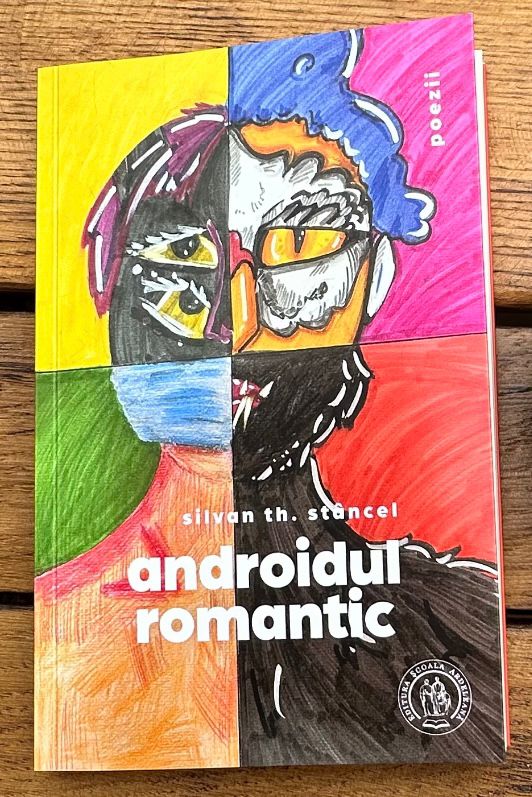 poezii
silvan th. stâncel
androidul
romantic
EDITURA ȘCOALA ARDELEANĂ